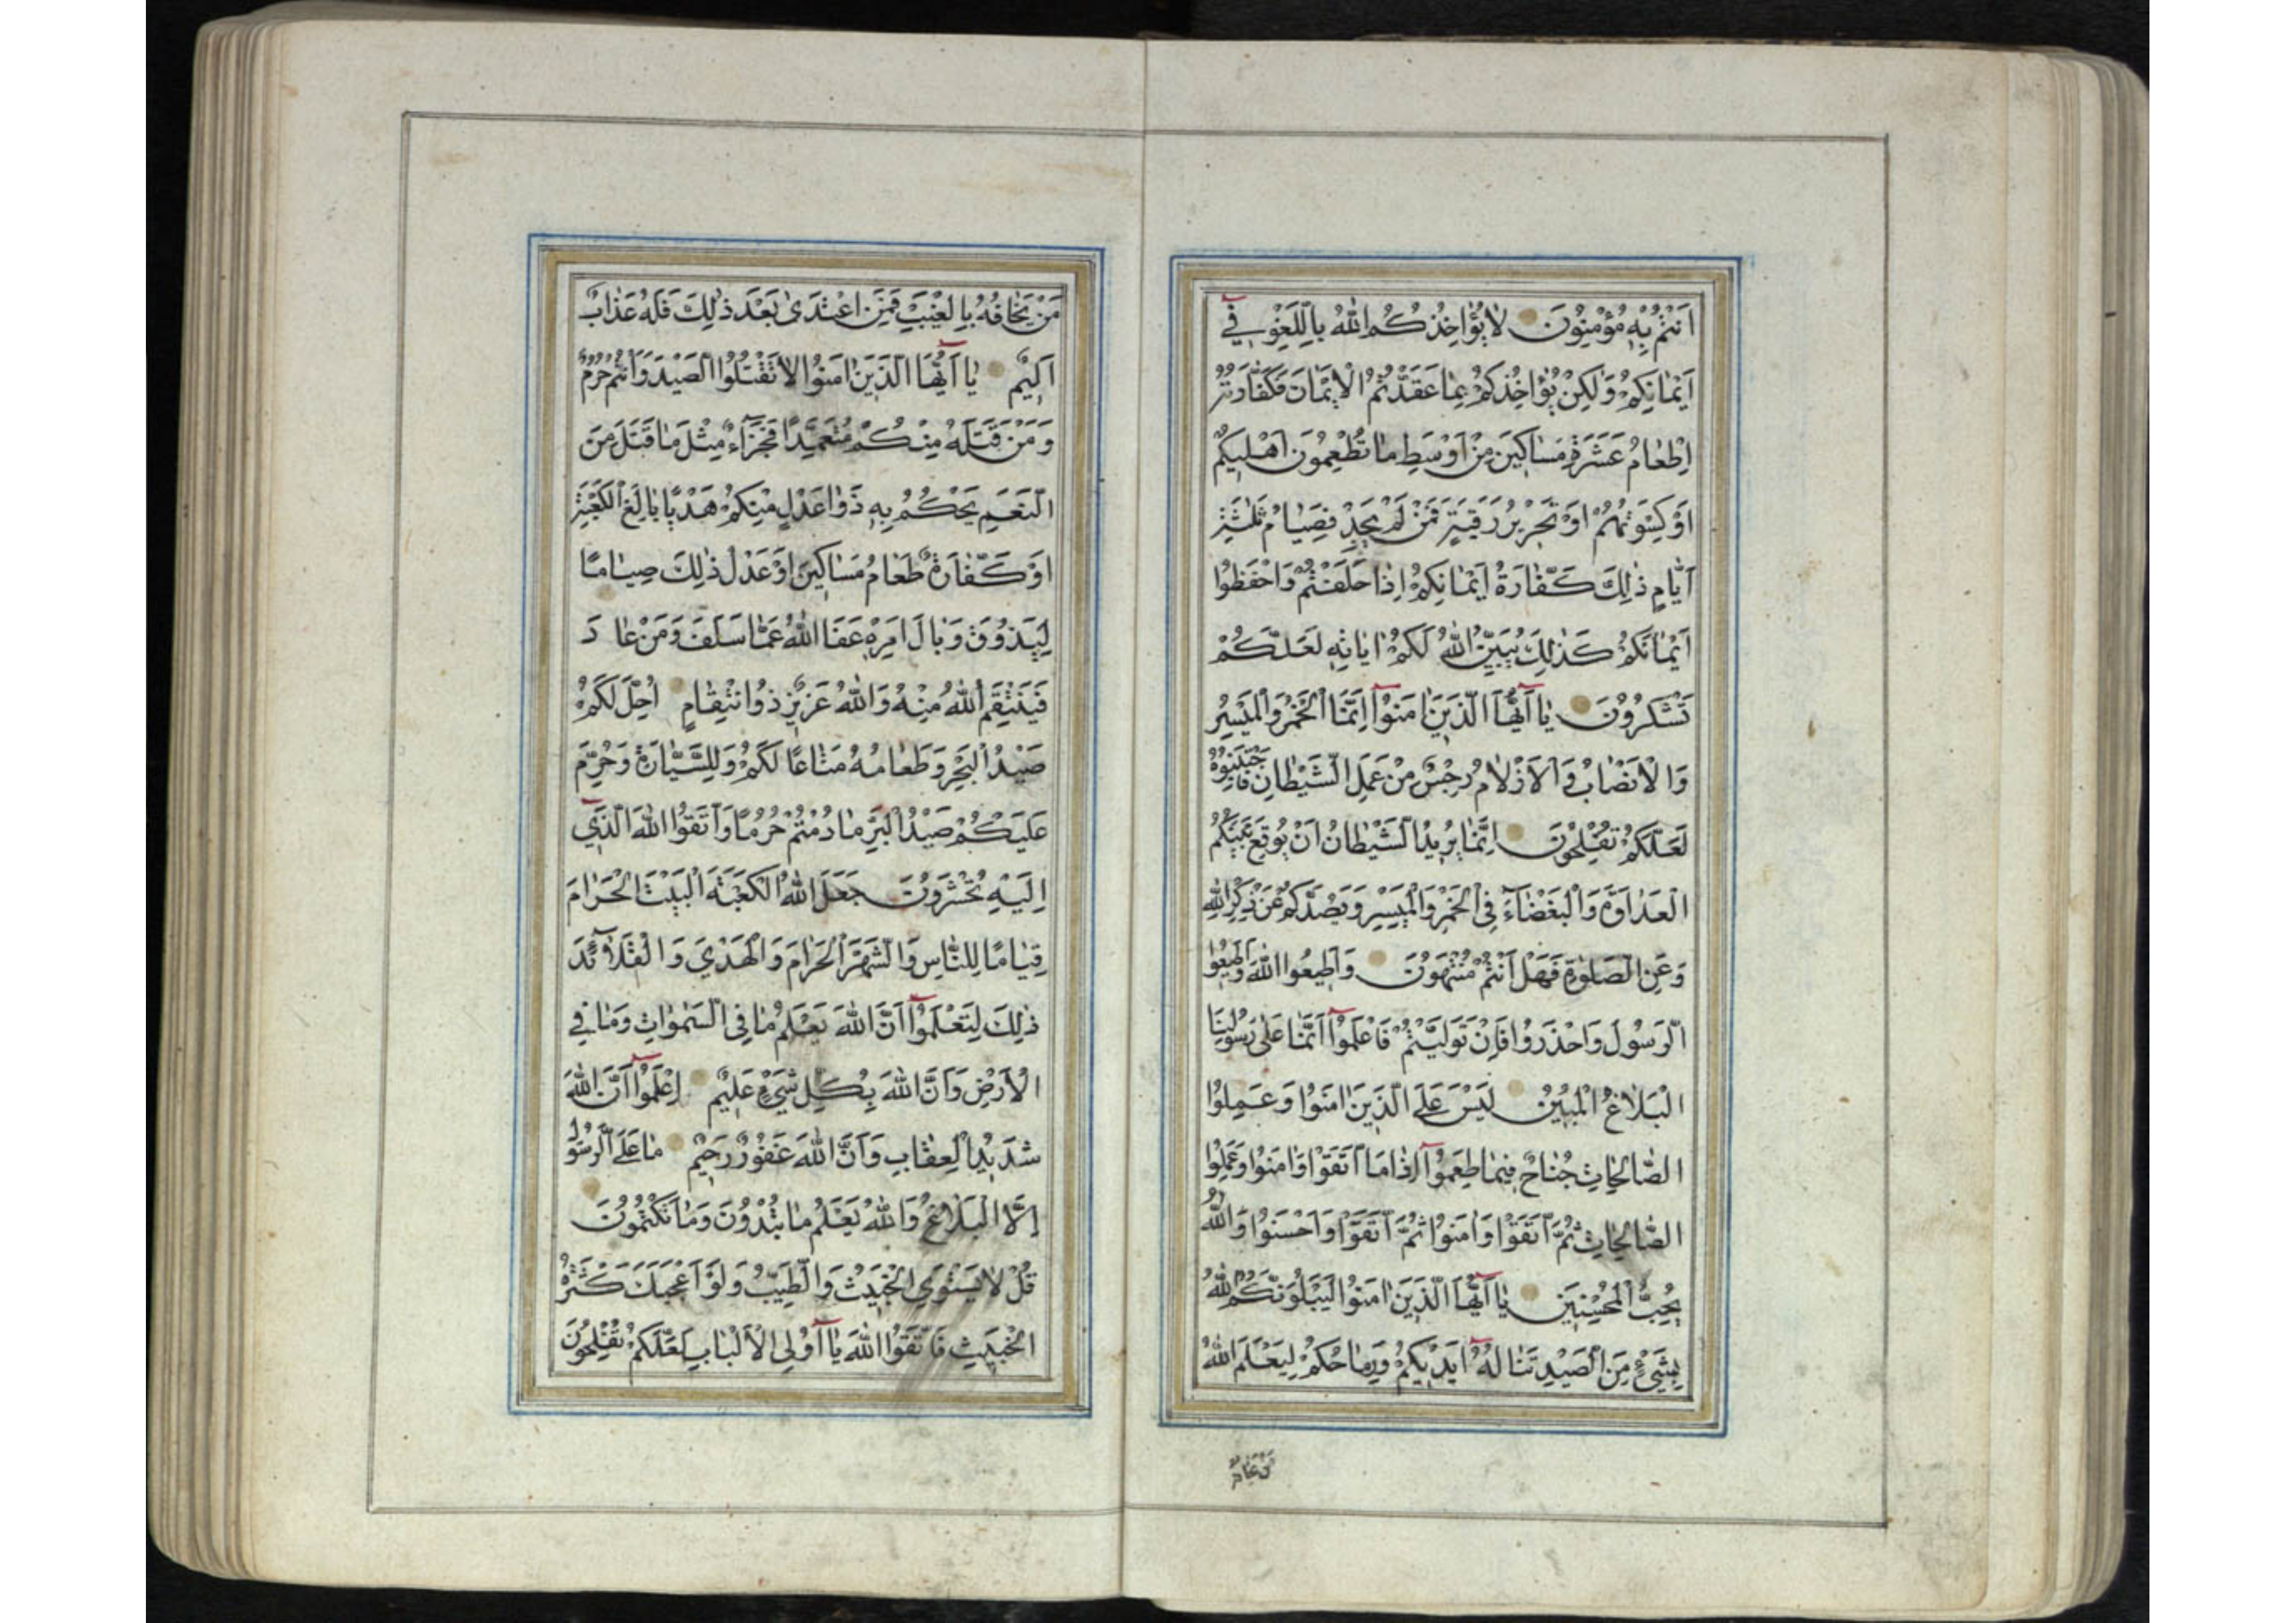 اَنْتُمْ بِهِ مُؤْمِنُونَ لَا يُؤَاخِذُكُمُ اللّٰهُ بِاللَّغْوِ فِي
اَيْمَانِكُمْ وَلٰكِنْ يُؤَاخِذُكُمْ بِمَا عَقَّدْتُمُ الْاَيْمَانَ فَكَفَّارَتُهُ
اِطْعَامُ عَشَرَةِ مَسَاكِينَ مِنْ اَوْسَطِ مَا تُطْعِمُونَ اَهْلِيكُمْ
اَوْ كِسْوَتُهُمْ اَوْ تَحْرِيرُ رَقَبَةٍ فَمَنْ لَمْ يَجِدْ فَصِيَامُ ثَلٰثَةِ
اَيَّامٍ ذٰلِكَ كَفَّارَةُ اَيْمَانِكُمْ اِذَا حَلَفْتُمْ وَاحْفَظُوا
اَيْمَانَكُمْ كَذٰلِكَ يُبَيِّنُ اللّٰهُ لَكُمْ اٰيَاتِهِ لَعَلَّكُمْ
تَشْكُرُونَ يَا اَيُّهَا الَّذِينَ اٰمَنُوا اِنَّمَا الْخَمْرُ وَالْمَيْسِرُ
وَالْاَنْصَابُ وَالْاَزْلَامُ رِجْسٌ مِنْ عَمَلِ الشَّيْطَانِ فَاجْتَنِبُوهُ
لَعَلَّكُمْ تُفْلِحُونَ اِنَّمَا يُرِيدُ الشَّيْطَانُ اَنْ يُوقِعَ بَيْنَكُمُ
الْعَدَاوَةَ وَالْبَغْضَاءَ فِي الْخَمْرِ وَالْمَيْسِرِ وَيَصُدَّكُمْ عَنْ ذِكْرِ اللّٰهِ
وَعَنِ الصَّلٰوةِ فَهَلْ اَنْتُمْ مُنْتَهُونَ وَاَطِيعُوا اللّٰهَ وَاَطِيعُوا
الرَّسُولَ وَاحْذَرُوا فَاِنْ تَوَلَّيْتُمْ فَاعْلَمُوا اَنَّمَا عَلٰى رَسُولِنَا
الْبَلَاغُ الْمُبِينُ لَيْسَ عَلَى الَّذِينَ اٰمَنُوا وَعَمِلُوا
الصَّالِحَاتِ جُنَاحٌ فِيمَا طَعِمُوا اِذَا مَا اتَّقَوْا وَاٰمَنُوا وَعَمِلُوا
الصَّالِحَاتِ ثُمَّ اتَّقَوْا وَاٰمَنُوا ثُمَّ اتَّقَوْا وَاَحْسَنُوا وَاللّٰهُ
يُحِبُّ الْمُحْسِنِينَ يَا اَيُّهَا الَّذِينَ اٰمَنُوا لَيَبْلُوَنَّكُمُ اللّٰهُ
بِشَيْءٍ مِنَ الصَّيْدِ تَنَالُهُ اَيْدِيكُمْ وَرِمَاحُكُمْ لِيَعْلَمَ اللّٰهُ
مَنْ يَخَافُهُ بِالْغَيْبِ فَمَنِ اعْتَدٰى بَعْدَ ذٰلِكَ فَلَهُ عَذَابٌ
اَلِيمٌ يَا اَيُّهَا الَّذِينَ اٰمَنُوا لَا تَقْتُلُوا الصَّيْدَ وَاَنْتُمْ حُرُمٌ
وَمَنْ قَتَلَهُ مِنْكُمْ مُتَعَمِّدًا فَجَزَاءٌ مِثْلُ مَا قَتَلَ مِنَ
النَّعَمِ يَحْكُمُ بِهِ ذَوَا عَدْلٍ مِنْكُمْ هَدْيًا بَالِغَ الْكَعْبَةِ
اَوْ كَفَّارَةٌ طَعَامُ مَسَاكِينَ اَوْ عَدْلُ ذٰلِكَ صِيَامًا
لِيَذُوقَ وَبَالَ اَمْرِهِ عَفَا اللّٰهُ عَمَّا سَلَفَ وَمَنْ عَادَ
فَيَنْتَقِمُ اللّٰهُ مِنْهُ وَاللّٰهُ عَزِيزٌ ذُو انْتِقَامٍ اُحِلَّ لَكُمْ
صَيْدُ الْبَحْرِ وَطَعَامُهُ مَتَاعًا لَكُمْ وَلِلسَّيَّارَةِ وَحُرِّمَ
عَلَيْكُمْ صَيْدُ الْبَرِّ مَا دُمْتُمْ حُرُمًا وَاتَّقُوا اللّٰهَ الَّذِي
اِلَيْهِ تُحْشَرُونَ جَعَلَ اللّٰهُ الْكَعْبَةَ الْبَيْتَ الْحَرَامَ
قِيَامًا لِلنَّاسِ وَالشَّهْرَ الْحَرَامَ وَالْهَدْيَ وَالْقَلَائِدَ
ذٰلِكَ لِتَعْلَمُوا اَنَّ اللّٰهَ يَعْلَمُ مَا فِي السَّمٰوَاتِ وَمَا فِي
الْاَرْضِ وَاَنَّ اللّٰهَ بِكُلِّ شَيْءٍ عَلِيمٌ اِعْلَمُوا اَنَّ اللّٰهَ
شَدِيدُ الْعِقَابِ وَاَنَّ اللّٰهَ غَفُورٌ رَحِيمٌ مَا عَلَى الرَّسُولِ
اِلَّا الْبَلَاغُ وَاللّٰهُ يَعْلَمُ مَا تُبْدُونَ وَمَا تَكْتُمُونَ
قُلْ لَا يَسْتَوِي الْخَبِيثُ وَالطَّيِّبُ وَلَوْ اَعْجَبَكَ كَثْرَةُ
الْخَبِيثِ فَاتَّقُوا اللّٰهَ يَا اُولِي الْاَلْبَابِ لَعَلَّكُمْ تُفْلِحُونَ